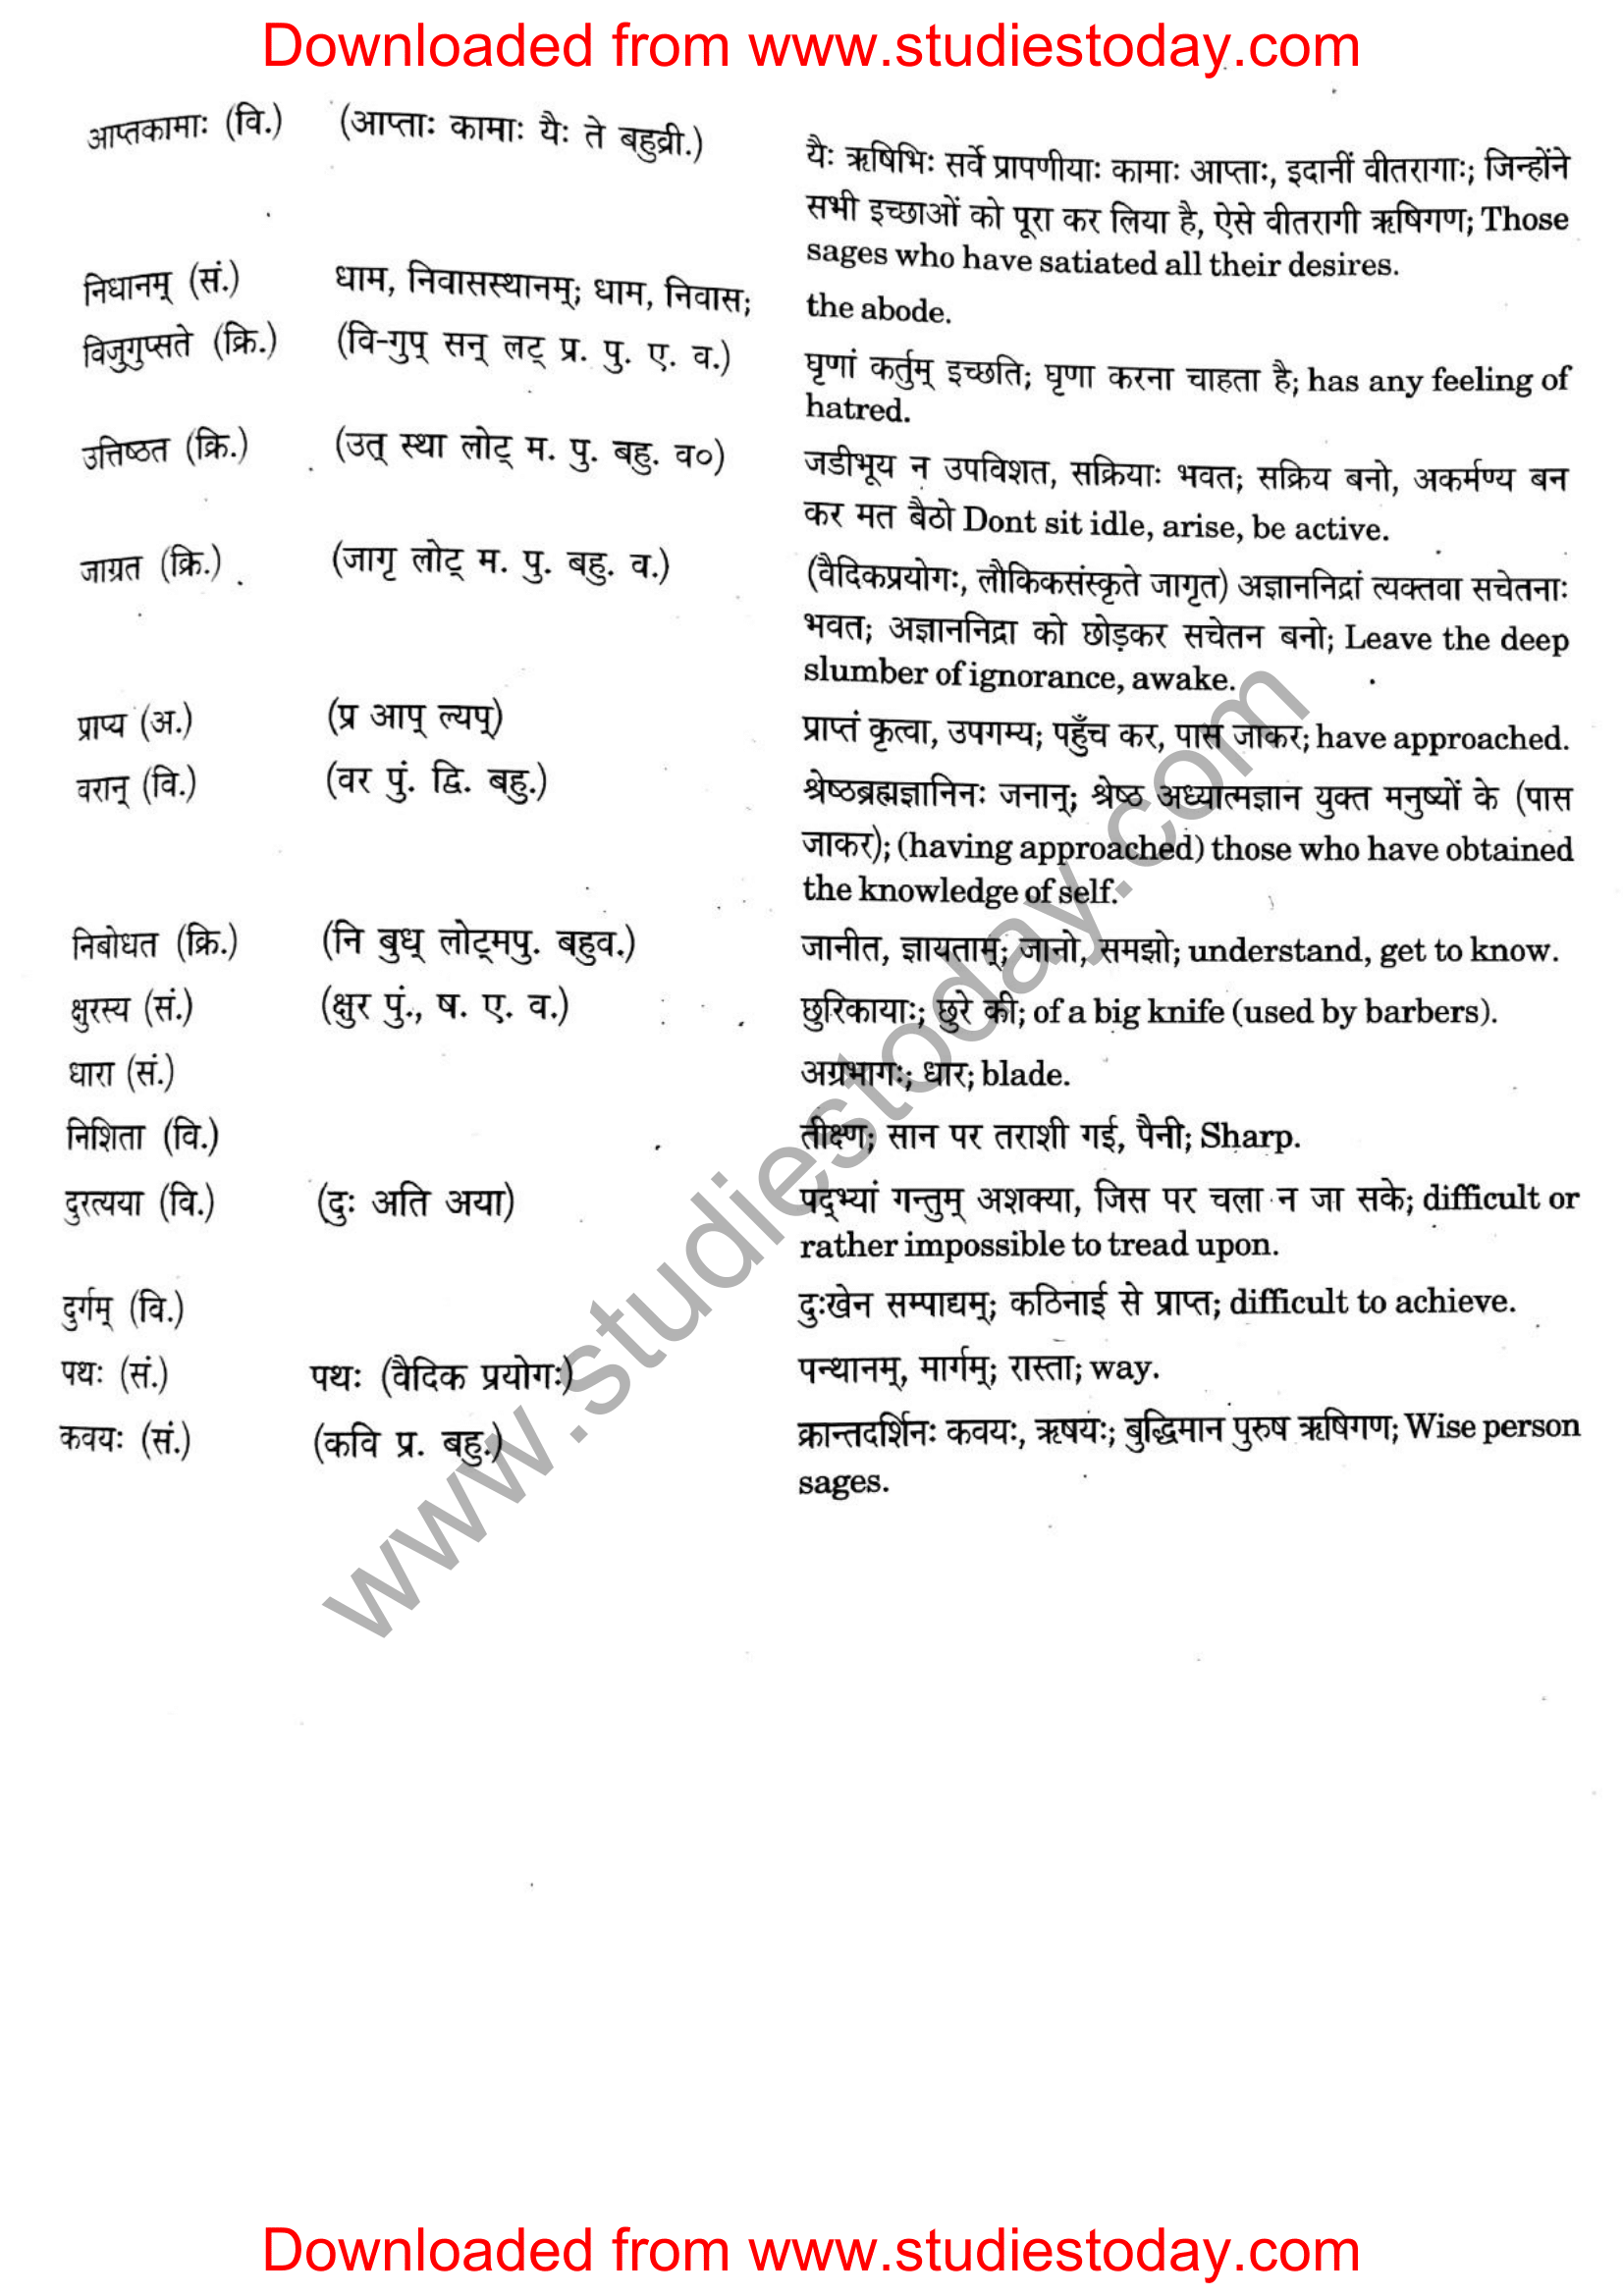 Downloaded from www.studiestoday.com
आप्तकामाः (वि.) (आप्ताः कामाः यैः ते बहुव्री.)
यैः ऋषिभिः सर्वे प्रापणीयाः कामाः आप्ताः, इदानीं वीतरागाः; जिन्होंने
सभी इच्छाओं को पूरा कर लिया है, ऐसे वीतरागी ऋषिगण; Those
sages who have satiated all their desires.
निधानम् (सं.) धाम, निवासस्थानम्; धाम, निवास; the abode.
विजुगुप्सते (क्रि.) (वि-गुप् सन् लट् प्र. पु. ए. व.) घृणां कर्तुम् इच्छति; घृणा करना चाहता है; has any feeling of
hatred.
उत्तिष्ठत (क्रि.) (उत् स्था लोट् म. पु. बहु. व०) जडीभूय न उपविशत, सक्रियाः भवत; सक्रिय बनो, अकर्मण्य बन
कर मत बैठो Dont sit idle, arise, be active.
जाग्रत (क्रि.) (जागृ लोट् म. पु. बहु. व.) (वैदिकप्रयोगः, लौकिकसंस्कृते जागृत) अज्ञाननिद्रां त्यक्तवा सचेतनाः
भवत; अज्ञाननिद्रा को छोड़कर सचेतन बनो; Leave the deep
slumber of ignorance, awake.
प्राप्य (अ.) (प्र आप् ल्यप्) प्राप्तं कृत्वा, उपगम्य; पहुँच कर, पास जाकर; have approached.
वरान् (वि.) (वर पुं. द्वि. बहु.) श्रेष्ठब्रह्मज्ञानिनः जनान्; श्रेष्ठ अध्यात्मज्ञान युक्त मनुष्यों के (पास
जाकर); (having approached) those who have obtained
the knowledge of self.
निबोधत (क्रि.) (नि बुध् लोट्मपु. बहुव.) जानीत, ज्ञायताम्; जानो, समझो; understand, get to know.
क्षुरस्य (सं.) (क्षुर पुं., ष. ए. व.) छुरिकायाः; छुरे की; of a big knife (used by barbers).
धारा (सं.) अग्रभागः; धार; blade.
निशिता (वि.) तीक्ष्ण; सान पर तराशी गई, पैनी; Sharp.
दुरत्यया (वि.) (दुः अति अया) पद्भ्यां गन्तुम् अशक्या, जिस पर चला न जा सके; difficult or
rather impossible to tread upon.
दुर्गम् (वि.) दुःखेन सम्पाद्यम्; कठिनाई से प्राप्त; difficult to achieve.
पथः (सं.) पथः (वैदिक प्रयोगः) पन्थानम्, मार्गम्; रास्ता; way.
कवयः (सं.) (कवि प्र. बहु.) क्रान्तदर्शिनः कवयः, ऋषयः; बुद्धिमान पुरुष ऋषिगण; Wise person
sages.
www.studiestoday.com
Downloaded from www.studiestoday.com